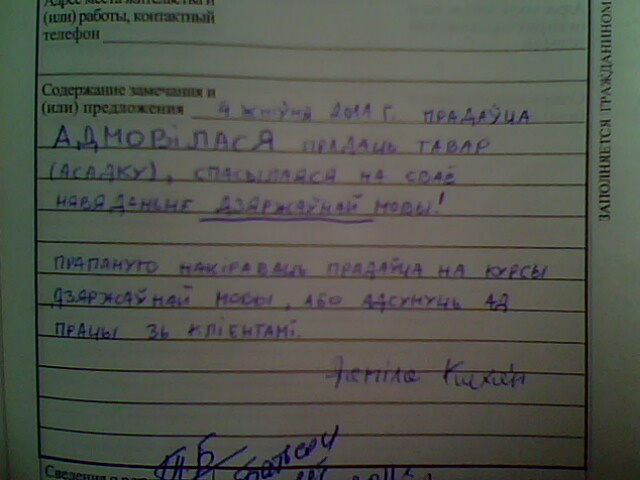 Адрес места жительства и
(или) работы, контактный
телефон
Содержание замечания и
(или) предложения 4 жніўня 2011 г. прадаўца
АДМОВІЛАСЯ прадаць тавар
(асадку), спасылаяся на сваё
навяданьне дзяржаўнай мовы!
Прапаную накіраваць прадаўца на курсы
дзяржаўнай мовы, або адсунуць ад
працы зь кліентамі.
Сведения о
ЗАПОЛНЯЕТСЯ ГРАЖДАНИНОМ